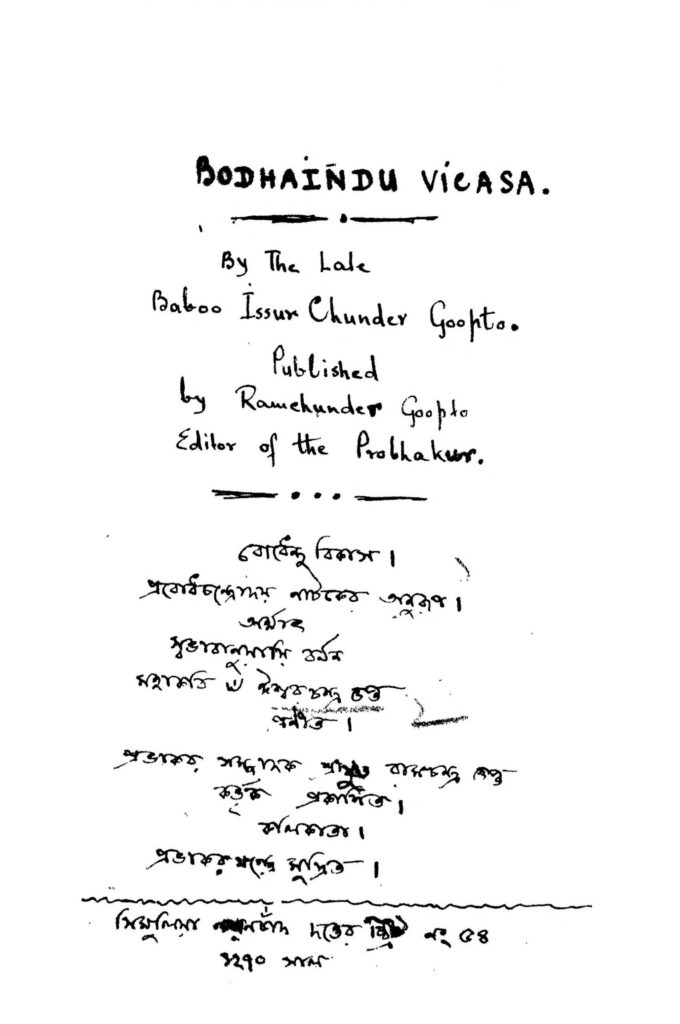 BODHAINDU VICASA.
By The Late
Baboo Issur Chunder Goopto.
Published
by Ramchunder Goopto
Editor of the Probhakur.
বোধেন্দু বিকাস।
প্রবোধচন্দ্রোদয় নাটকের অনুরূপ।
অর্থাৎ
স্বভাবানুযায়ি বর্ণন
মহাকবি ৺ ঈশ্বরচন্দ্র গুপ্ত
প্রণীত।
প্রভাকর সম্পাদক শ্রীযুত রামচন্দ্র গুপ্ত
কর্তৃক প্রকাশিত।
কলিকাতা।
প্রভাকর যন্ত্রে মুদ্রিত।
সিমুলিয়া দত্তের নং ৫৪
১২৭০ সাল